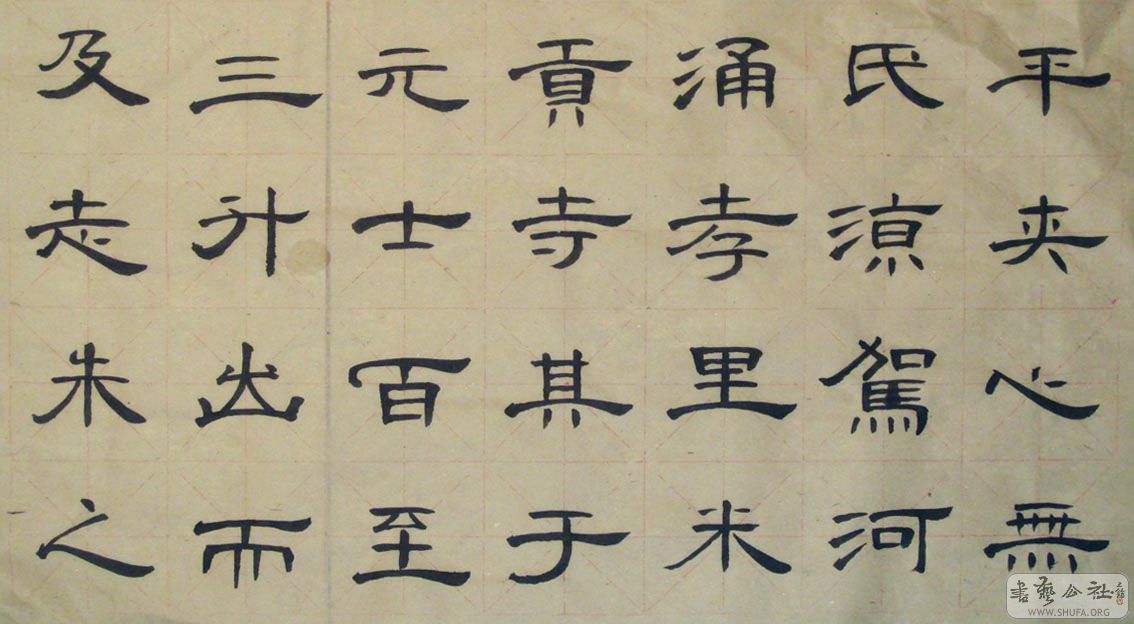 平夾心無
氏涼駕河
涌孝里米
貢寺其于
元士百至
三升出而
及走朱之
書藝公社
WWW.SHUFA.ORG